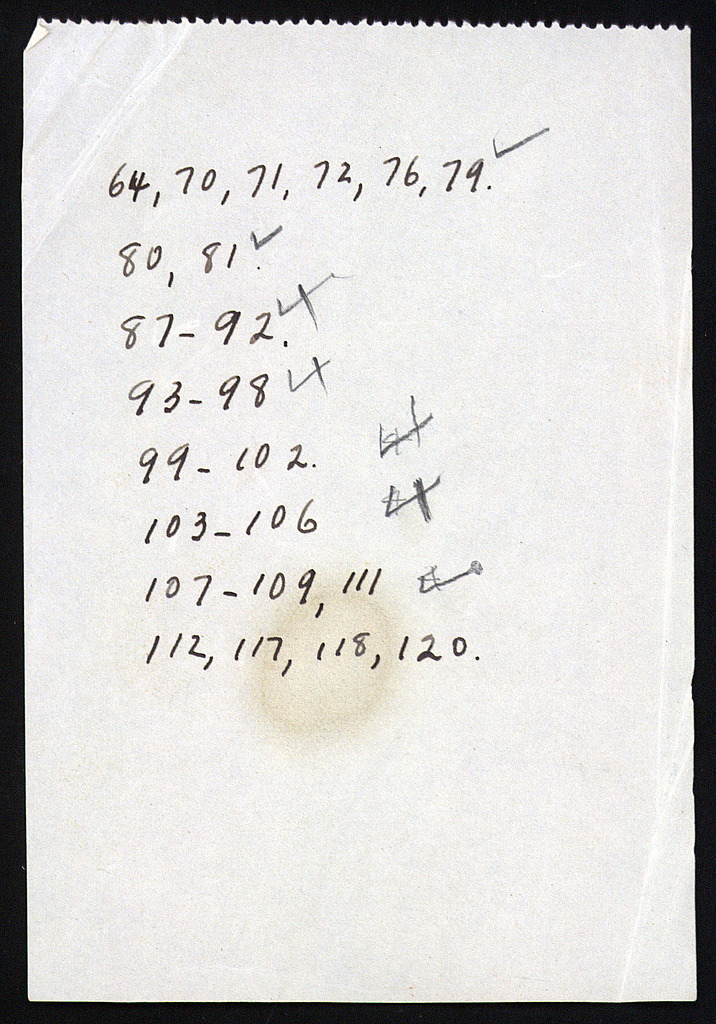 64, 70, 71, 72, 76, 79. ✓
80, 81. ✓
87-92. ✓
93-98 ✓
99-102. ✓
103-106 ✓
107-109, 111 ✓
112, 117, 118, 120.